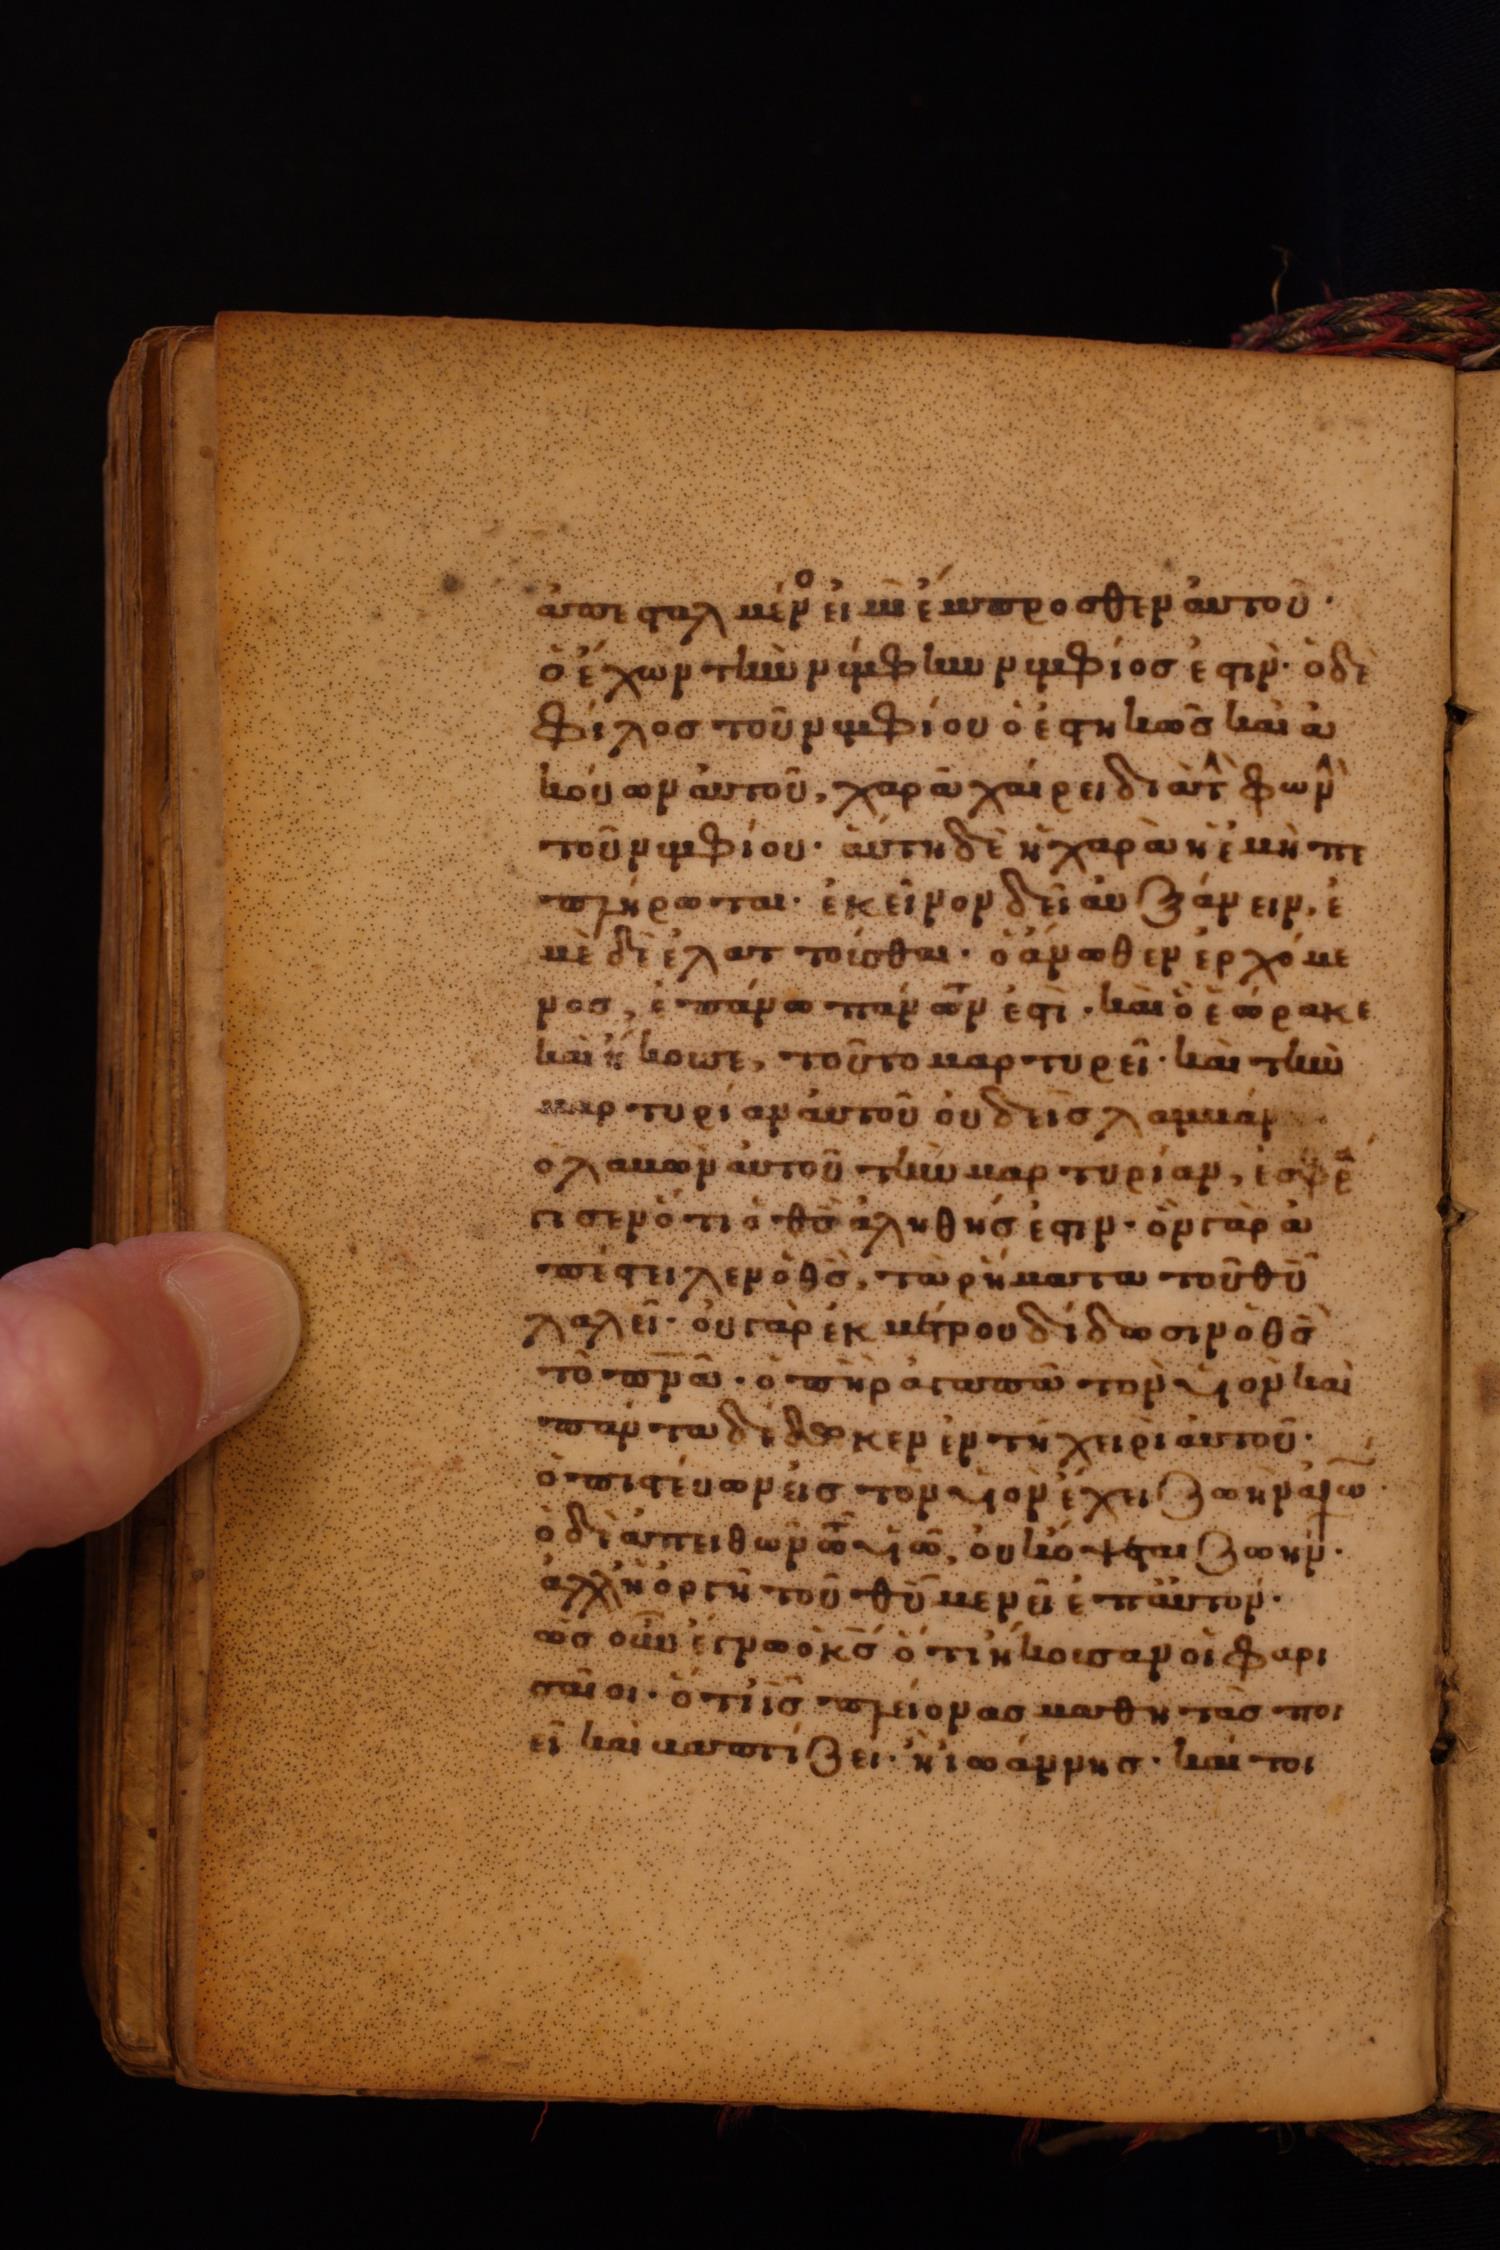 ἀπεσταλμένͦ εἰμὶ ἔμπροσθεν αὐτοῦ·
ὁ ἔχων τὴν νύμφην νυμφίος ἐστὶν· ὁ δὲ
φίλος τοῦ νυμφίου ὁ ἑστηκὼς καὶ ἀ
κούων αὐτοῦ, χαρᾶ χαίρει διὰ τ̂ φων̂
τοῦ νυμφίου· αὕτη δὲ ἡ χαρὰ ἡ ἐμὴ πε
πλήρωται· ἐκεῖνον δεῖ αὐξάνειν, ἐ
μὲ δὲ ἐλαττοῦσθαι· ὁ ἄνωθεν ἐρχόμε
νος, ἐπάνω πάντων ἐστὶ· καὶ ὃ ἑώρακε
καὶ ἤκουσε, τοῦτο μαρτυρεῖ· καὶ τὴν
μαρτυρίαν αὐτοῦ οὐδεὶς λαμβάν
ὁ λαβὼν αὐτοῦ τὴν μαρτυρίαν, ἐσφρά
γισεν ὅτι ὁ θς ἀληθής ἐστιν· ὃν γὰρ ἀ
πέστειλεν ὁ θς, τὰ ρήματα τοῦ θυ
λαλεῖ· οὐ γὰρ ἐκ μέτρου δίδωσιν ὁ θς
τὸ πνα· ὁ πηρ ἀγαπᾶ τὸν υἱὸν καὶ
πάντα δέδωκεν ἐν τῆ χειρὶ αὐτοῦ·
ὁ πιστεύων εἰς τὸν υἱὸν ἔχει ζωὴν αἰω·
ὁ δὲ ἀπειθῶν τῶ υἱῶ, οὐκ ὄψεται ζωήν·
ἀλλ' ἡ ὀργὴ τοῦ θυ μενεῖ ἐπ' αὐτόν·
ὡς οὖν ἔγνω ὁ κς ὅτι ἤκουσαν οἱ φαρι
σαῖοι· ὅτι ις πλείονας μαθητὰς ποι
εῖ καὶ βαπτίζει· ἢ ἰωάννης· καί τοι